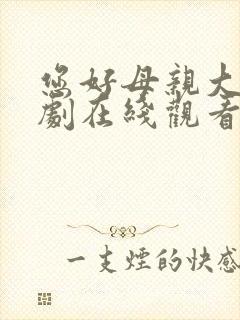 您好母親大
劇在綫觀看
一支煙的快感